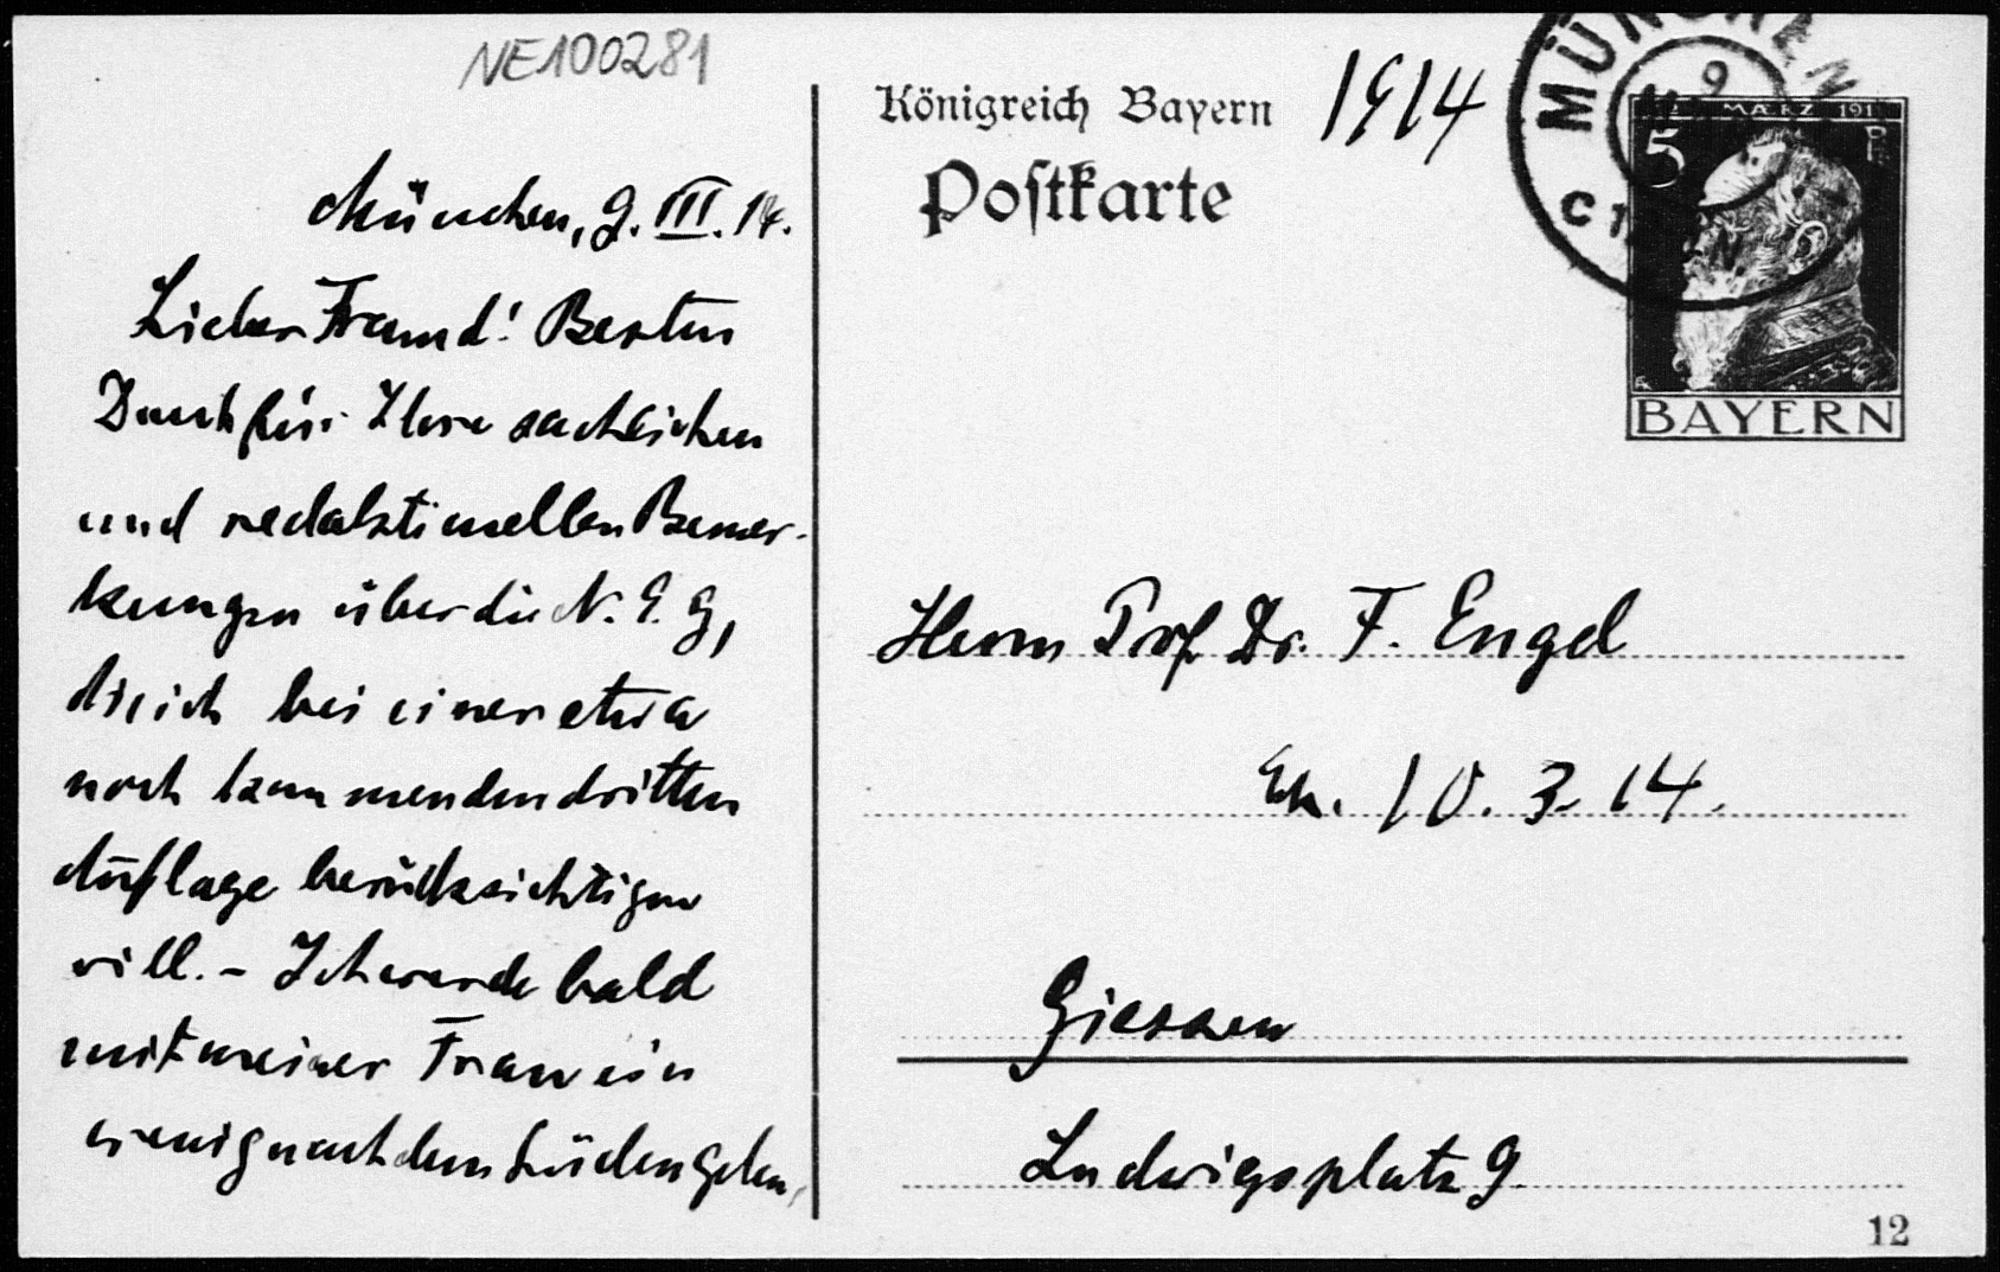 NE100281
München, 9. III. 14.
Lieber Freund! Besten
Dank für Ihre sachlichen
und redaktionellen Bemer-
kungen über die N. E. G,
die ich bei einer etwa
noch kommenden dritten
Auflage berücksichtigen
will. – Ich werde bald
mit meiner Frau ein
wenig nach dem Süden gehen,
Königreich Bayern
1914
Postkarte
MÜNCHEN
9
MÆRZ 191
5 Pf
BAYERN
Herrn Prof. Dr. F. Engel
Eh. 10. 3. 14.
Giessen
Ludwigsplatz 9
12